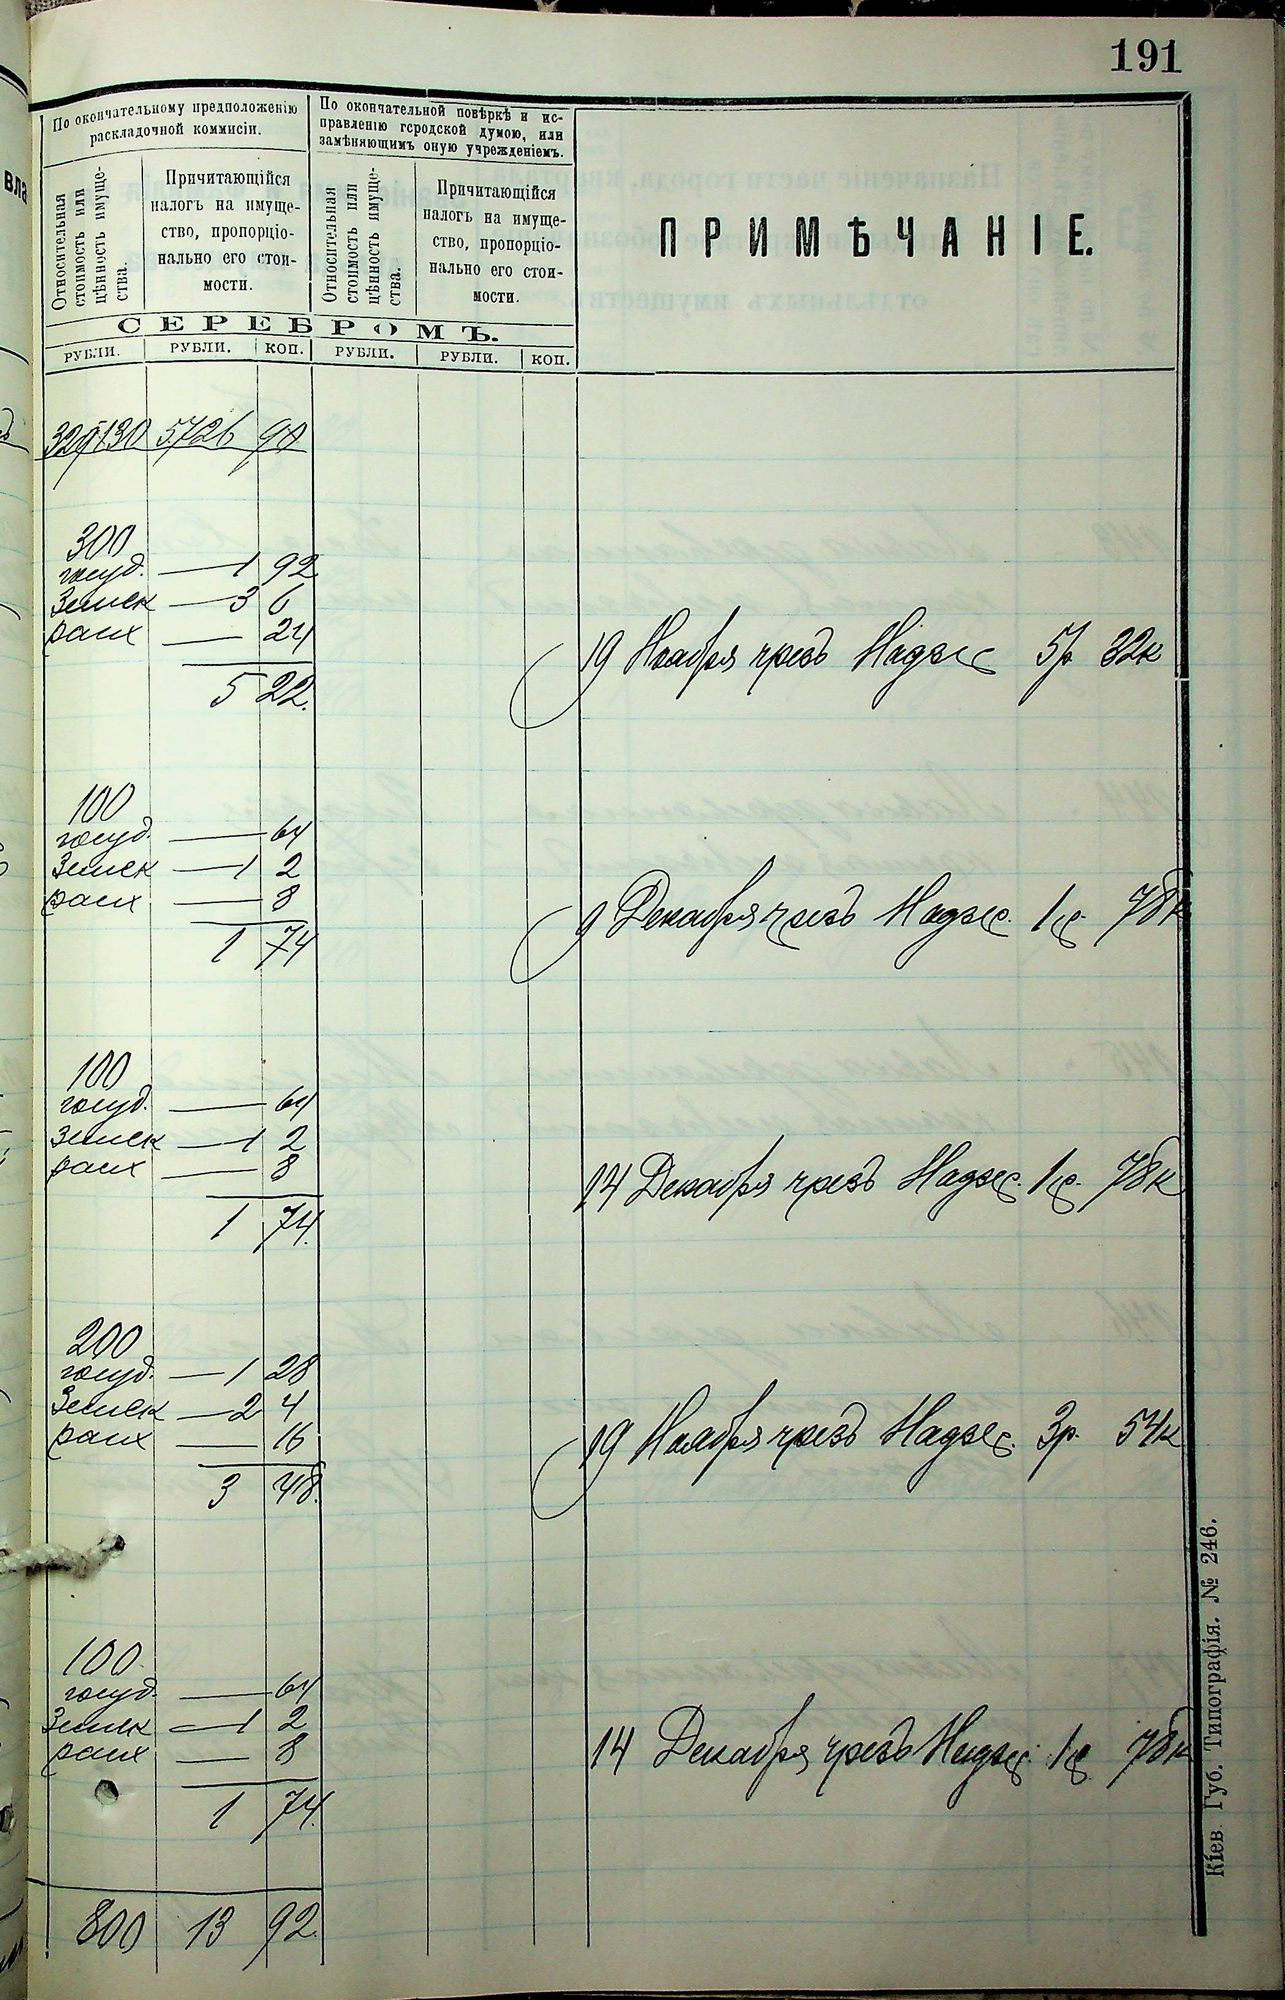 191
По окончательному предположенію
раскладочной коммисіи.
По окончательной повѣркѣ и ис-
правленію городской думою, или
замѣняющимъ оную учрежденіемъ.
Относительная
стоимость или
цѣнность имуще-
ства.
Причитающійся
налогъ на имуще-
ство, пропорціо-
нально его стои-
мости.
Относительная
стоимость или
цѣнность имуще-
ства.
Причитающійся
налогъ на имуще-
ство, пропорціо-
нально его стои-
мости.
ПРИМѢЧАНІЕ.
СЕРЕБРОМЪ.
РУБЛИ. РУБЛИ. КОП. РУБЛИ. РУБЛИ. КОП.
329130 5726 90
300
госуд. — 1 92
Земск — 3 6
расх — 24
19 Ноября чрезъ Надзс 5р 32к
5 22.
100
госуд. — 64
Земск — 1 2
расх — 8
9 Декабря чрезъ Надзс. 1р. 78к
1 74
100
госуд. — 64
Земск — 1 2
расх — 8
14 Декабря чрезъ Надзс. 1р. 78к
1 74.
200
госуд. — 1 28
Земск — 2 4
расх — 16
19 Ноября чрезъ Надзс. 3р. 54к
3 48.
100.
госуд. — 64
Земск — 1 2
расх — 8
14 Декабря чрезъ Надзс. 1р 78к
1 74.
800 13 92.
Кіев. Губ. Типографія. № 246.